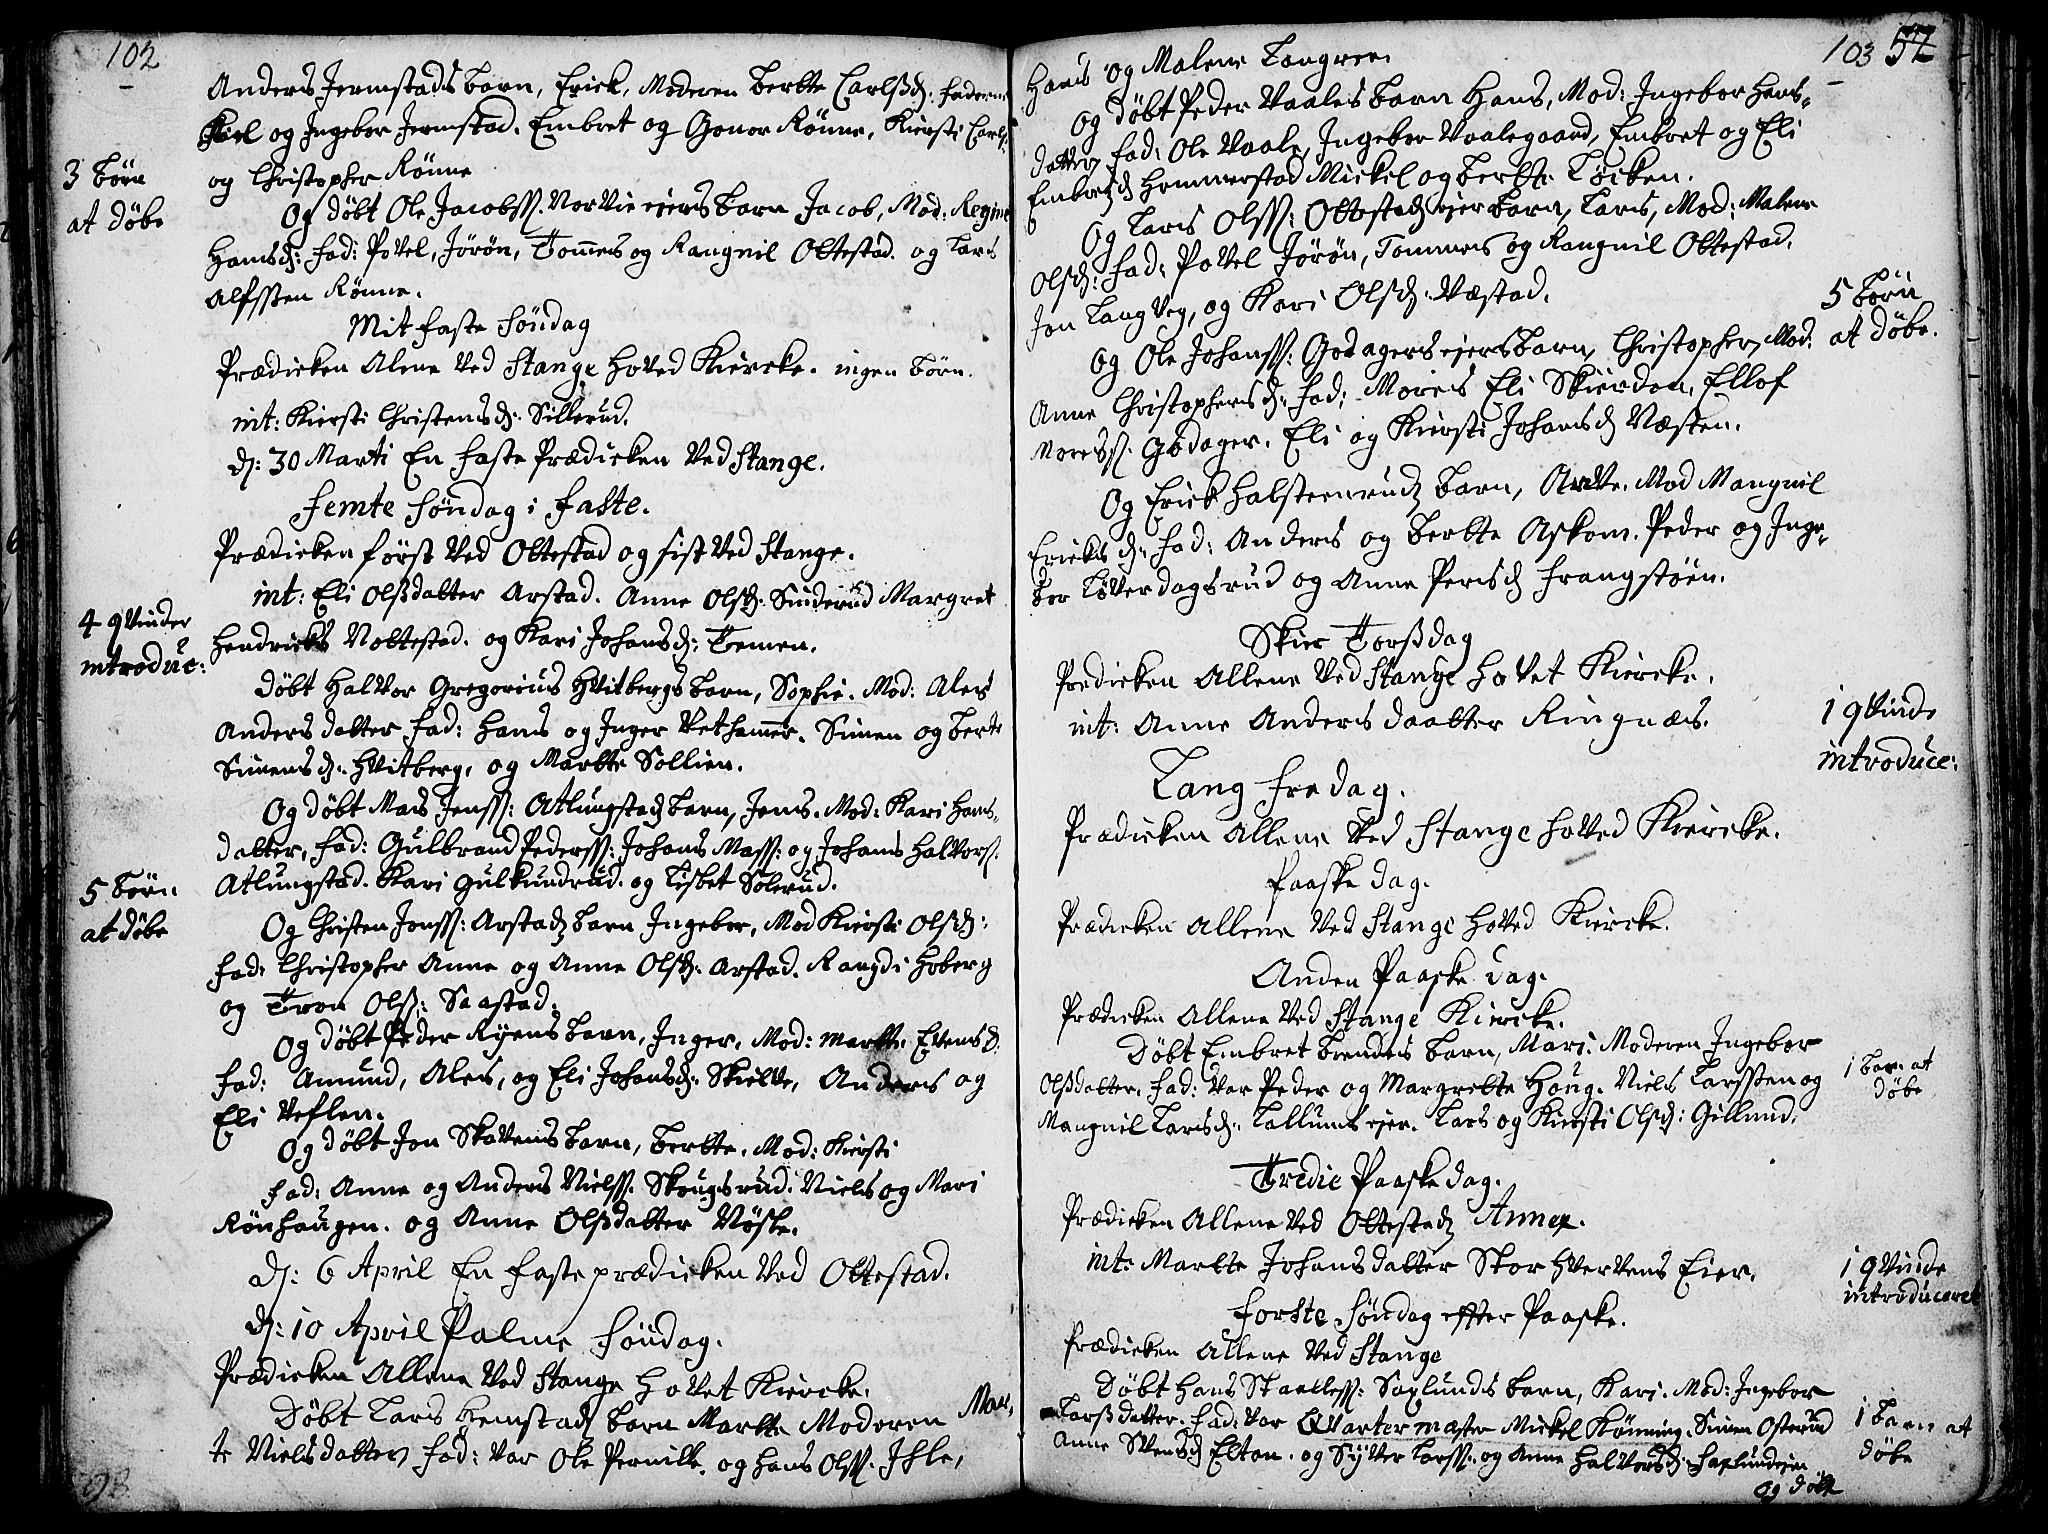 102
Anders Jermstads barn, Erick, Moderen Berthe Carlsd: faderne
Kiel og Ingebor Jermstad. Embret og Gonor Rönne, Kiersti Carls:
og Christopher Rönne
3 börn
at döbe
Og döbt Ole Jacobss. Norvie eiers barn Jacob, Mod: Regine
Hansd: fad: Povel, Jörön, Tom̄es og Rangnil Ottestad. og Lars
Alfssten Rönne.
Mit faste Söndag
Prædicken Alene Ved Stange Hoved Kiercke. ingen börn.
int: Kiersti Christensd: Sillerud.
d: 30 Marti En faste Prædicken Ved Stange.
Femte Söndag i Faste.
Prædicken först Ved Ottestad og sist Ved Stange.
int: Eli Olsdatter Arstad. Anne Olsd: Sinderud Margret
4 qvinder
introduc:
Hendricks Nottestad. og Kari Johansd: Tomen.
Döbt Halvor Gregorius Hvitbergs barn, Sophie. Mod: Ales
Anders datter fad: Hans og Inger Vetham̄er. Simen og berte
Simensd: Hvitberg, og Marthe Sollien.
Og döbt Mads Jenss: Atlungstads barn, Jens. Mod: Kari Hans-
datter, fad: Gulbrand Pederss: Johans Mass: og Johans Halvors.
Atlungstad. Kari Gulkundrud. og Lisbet Solerud.
5 börn
at döbe
Og Christen Jonss: Arstads barn Ingebor, Mod Kiersti Olsd:
fad: Christopher Anne og Anne Olsd: Arstad. Rangdi Hoberg
og Tron Ols: Saastad.
Og döbt Peder Ryens barn, Inger, Mod: Marthe Evensd.
fad: Amund, Ales, og Eli Johansd: Skielve, Anders og
Eli Veflen.
Og döbt Jon Skavens barn, berthe. Mod: Kiersti
fad: Anne og Anders Nielss. Skougsrud. Niels og Mari
Rönhaugen. og Anne Olsdatter Vöske.
d: 6 April En faste prædicken Ved Ottestad.
d: 10 April Palme Söndag.
Prædicken Allene Ved Stange Hovet Kiercke.
Döbt Lars Hemstads barn Marthe Moderen Mar-
te Nielsdatter fad: Var Ole Pernille. og Hans Olss. Ihle,
103 52
Hans og Malene Tangren
Og döbt Peder Vaales barn Hans, Mod: Ingebor Hans-
datter fad: Ole Vaale, Ingebor Vaalegaard, Embret og Eli
Embretsd Hommerstad Mickel og berthe Löcken.
Og Lars Olss: Ottestads eier barn, Lars, Mod: Malene
Olsd: fad: Povel Jörön, Tommes og Rangnil Ottestad.
Jon Langveg, og Kari Olsd: Væstad.
5 börn
at döbe.
Og Ole Johanss: Godagers eiers barn, Christopher, Mod.
Anne Christophersd: fad: Mores Eli Skierden, Ellof
Moress. Godager. Eli og Kiersti Johansd Næsten.
Og Erick Halsteenruds barn, Arve. Mod Mangnil
Ericksd: fad: Anders og berthe Askom. Peder og Inge-
bor Löverdagsrud og Anne Persd Frangstöen.
Skier Torsdag
Predicken Allene Ved Stange Hovet Kiercke.
int: Anne Anders daatter Ringnæs.
1 qvinde
introduce:
Lang fredag.
Prædicken Allene Ved Stange Hoved Kiercke.
Paaske dag.
Prædicken Allene Ved Stange Hoved Kiercke.
Anden Paaske dag.
Prædicken Allene Ved Stange Kiercke.
Döbt Embret brendes barn, Mari. Moderen Ingebor
Olsdatter. fad: Var Peder og Margrethe Houg. Niels Larssten og
Mangnil Larsd: Tallums eier. Lars og Kiersti Olsd: Gillund.
1 barn at
döbe
Tredie Paaske dag.
Prædicken Allene Ved Ottestads Annex.
int: Marthe Johansdatter Stor Hvervens Eier.
1 qvinde
introduceret
Forste Söndag effter Paaske.
Prædicken Allene Ved Stange
Döbt Hans Staalless: Saxlunds barn, Kari. Mod: Ingebor
Larsdatter. fad: Var Qvartermæster Mickel Könning. Simen Osterud
Anne Svensd Elton. og Sylver Larss. og Anne Halvorsd. Saxlundeien
1 barn at
döbe
og döbt